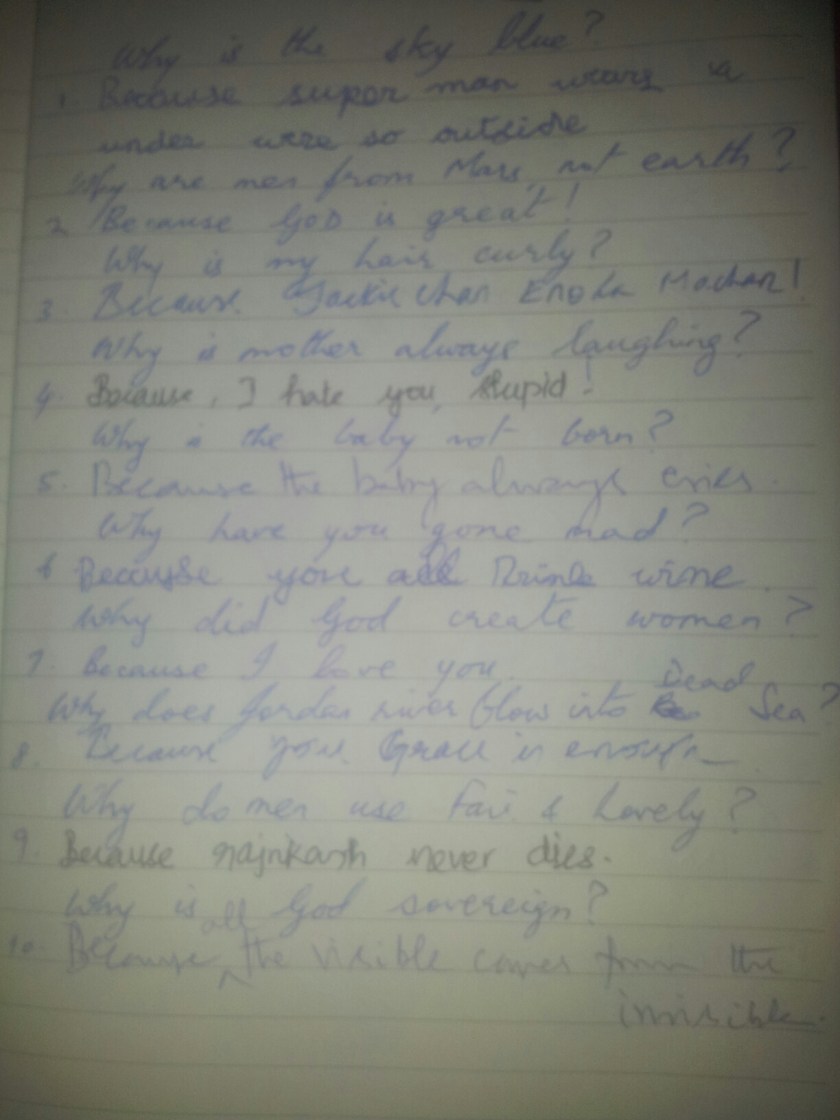 Why is the sky blue?
1. Because super man wears
under were so outside
Why are men from Mars, not earth?
2. Because God is great!
Why is my hair curly?
3. Because Jackie Chan Enoda Machan!
Why is mother always laughing?
4. Because, I hate you, stupid!
Why is the baby not born?
5. Because the baby always cries.
Why have you gone mad?
6 Because you all Drink wine.
Why did God create women?
7. Because I love you.
Why does Jordan river flow into Dead Sea?
8. Because your Grace is enough
Why do men use Fair & Lovely?
9. Because never dies.
Why is God sovereign?
10. Because all the visible comes from the
invisible.